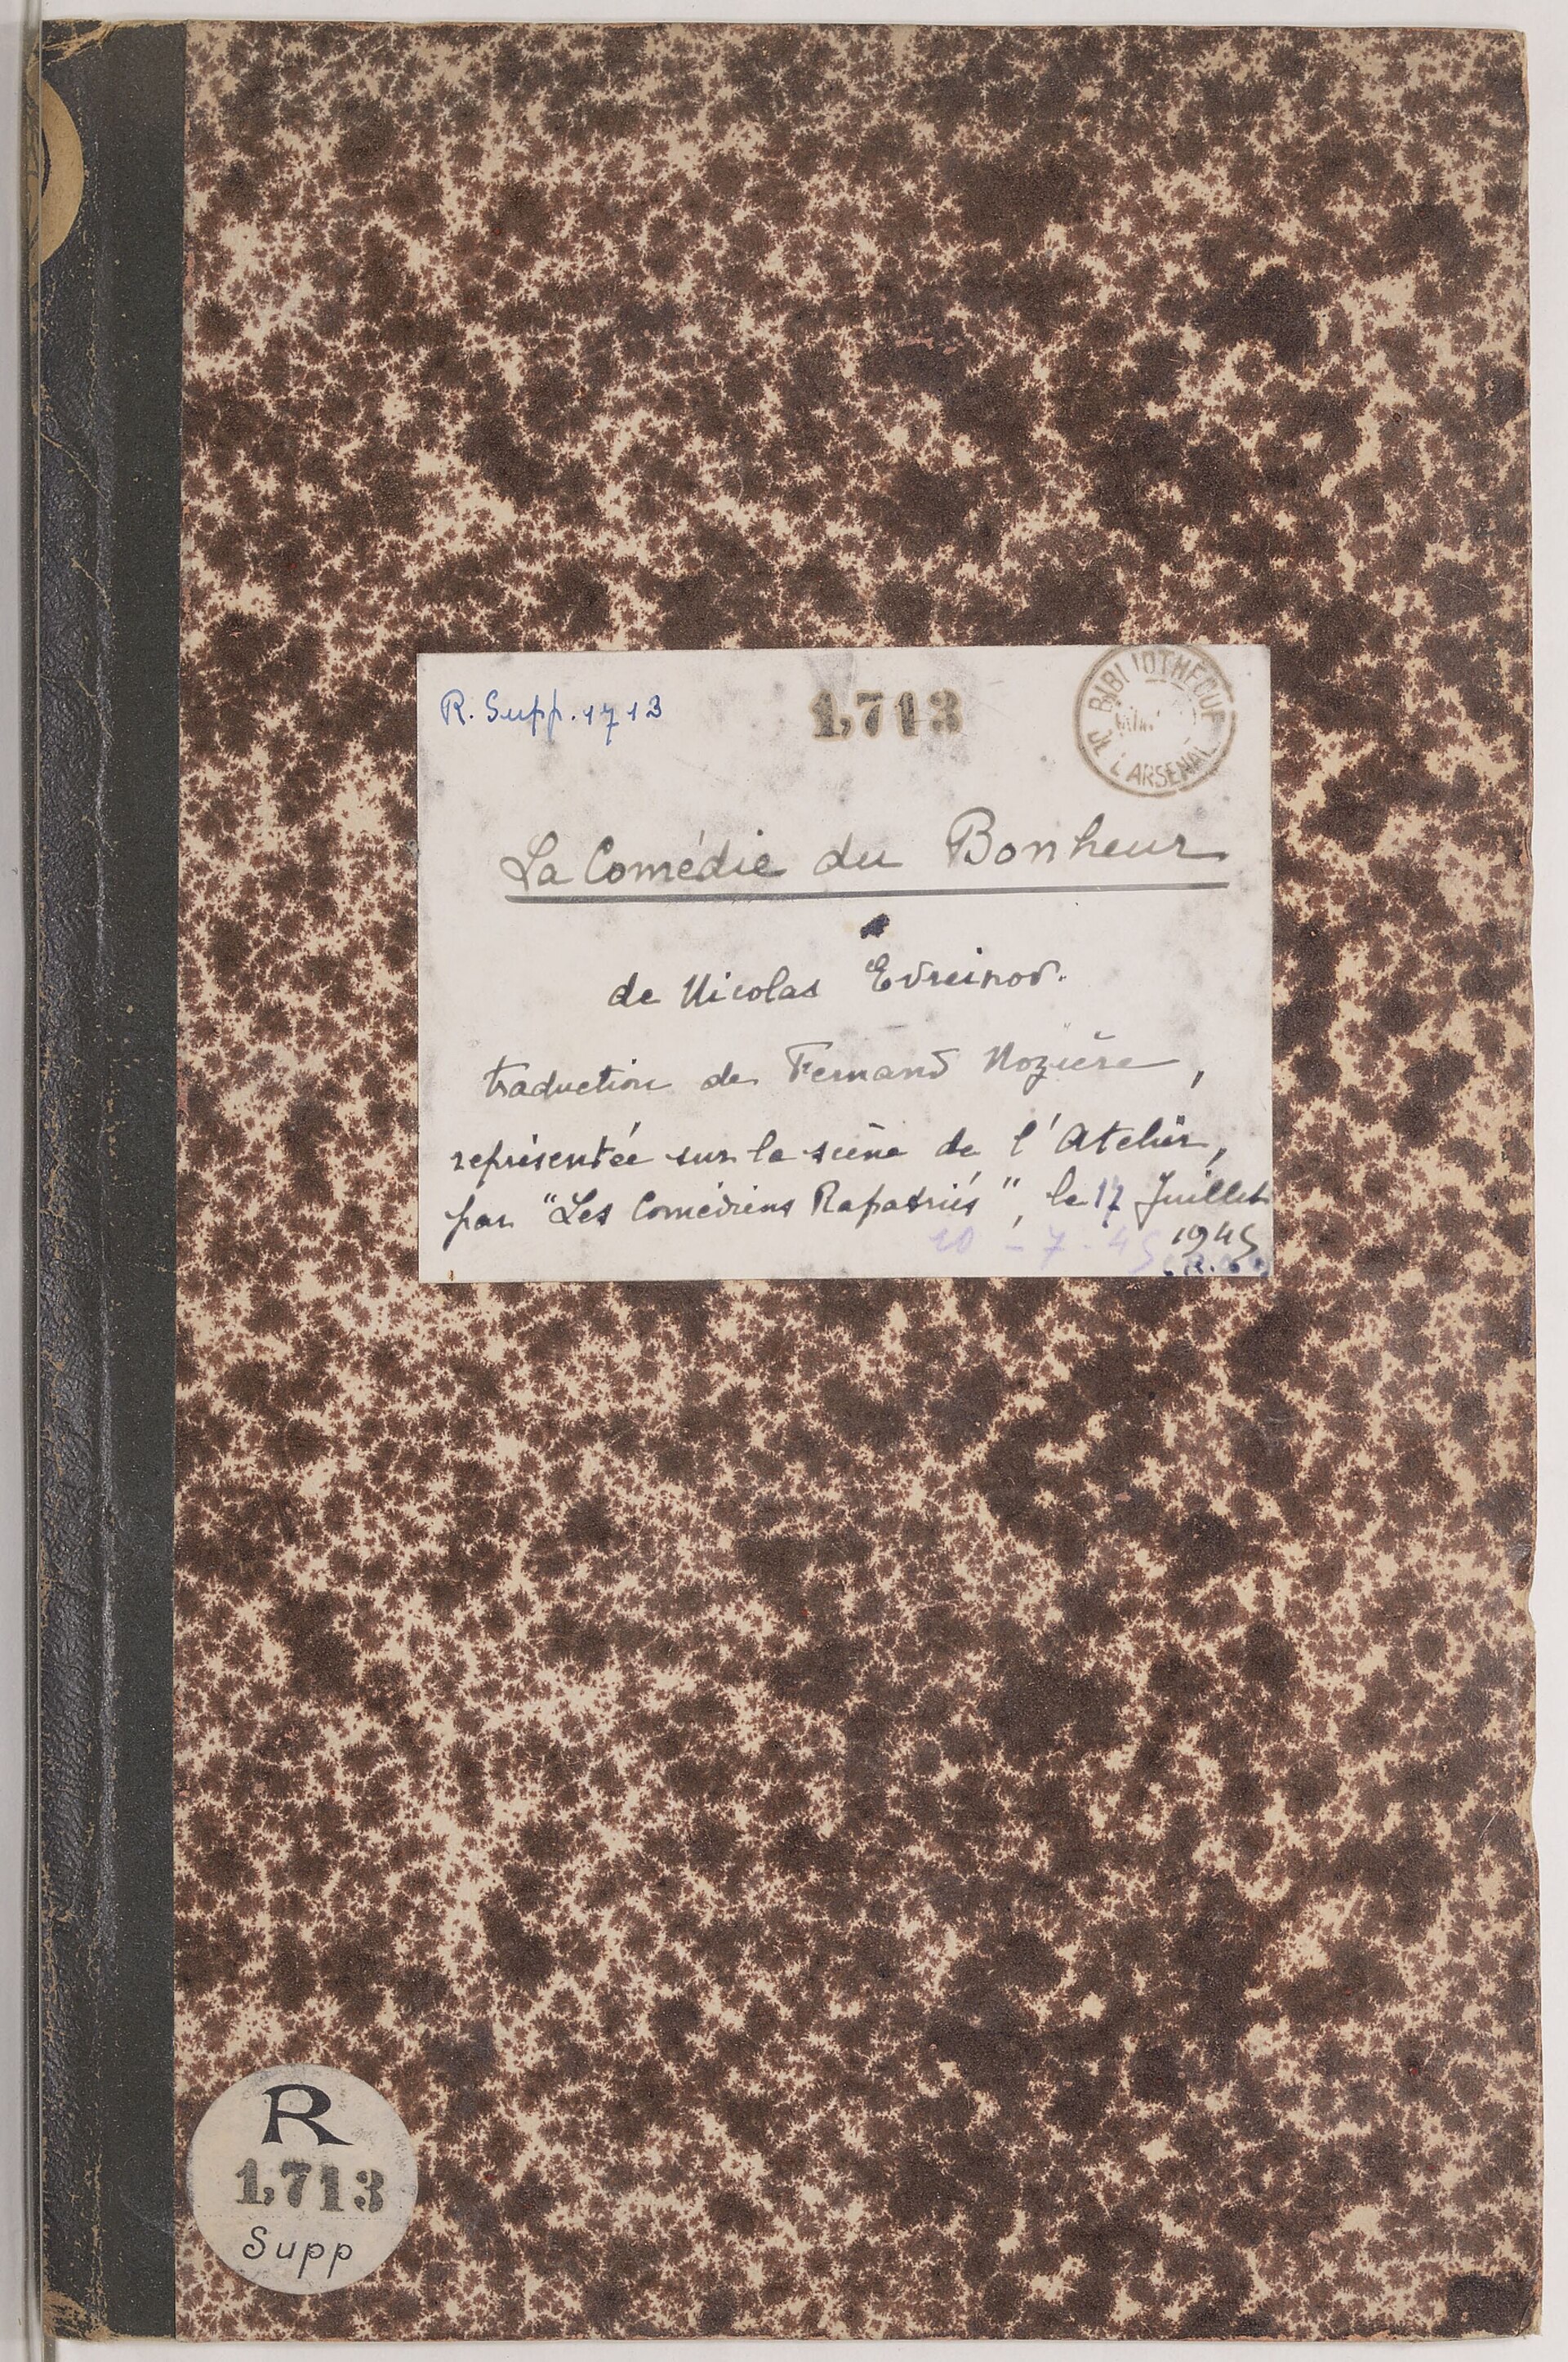 R. Supp. 1713
1,713
BIBLIOTHEQUE
DE L'ARSENAL
La Comédie du Bonheur
de Nicolas Evreinov.
traduction de Fernand Nozière,
représentée sur la scène de l'Atelier,
par "Les Comédiens Rapatriés", le 17 Juillet
1945
10-7-45
R
1,713
Supp